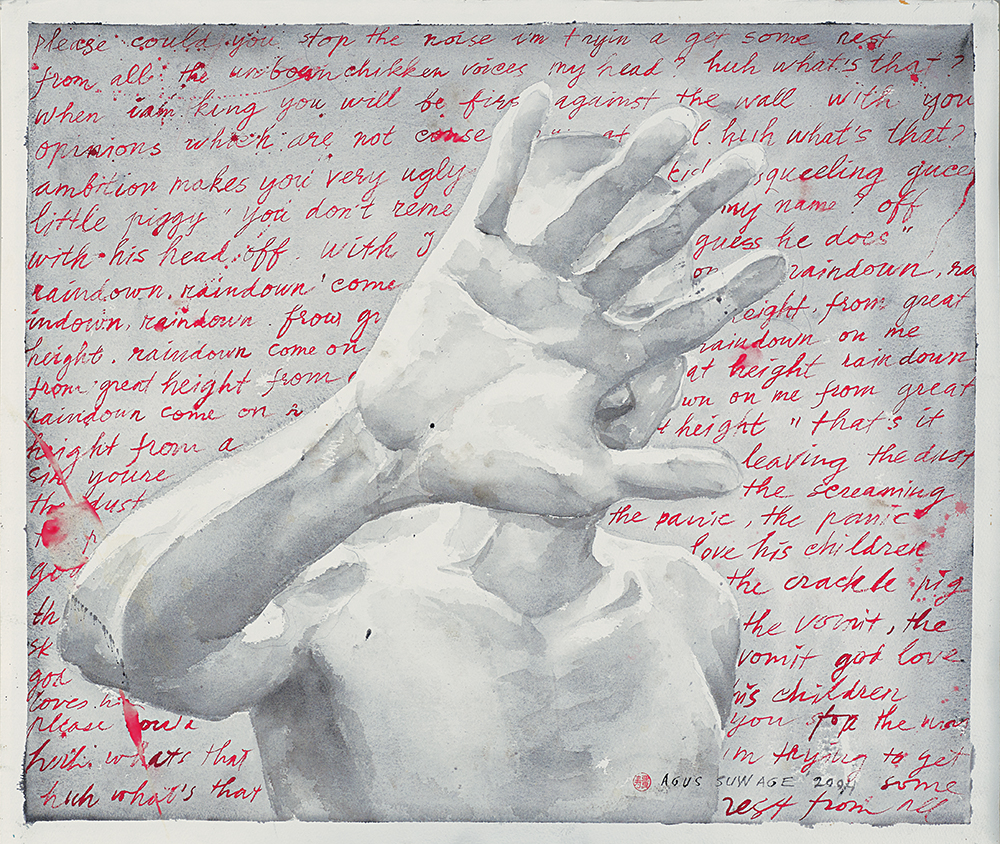 please could you stop the noise i'm tryin a get some rest
from all the unboarn chikken voices my head? huh what's that?
when iam king you will be firs against the wall with you
opinions which are not conse at l. huh what's that?
ambition makes you very ugly kid squeeling gucc
little piggy " you don't reme my name? off
with his head off. with I guess he does"
raindown. raindown come on raindown, ra
indown. raindown. from gr eight, from great
height. raindown come on raindown on me
from great height from at height raindown
raindown come on wn on me from great
height from a t height " that's it
sir youre leaving the dust
the dust the screaming
the panic, the panic
p love his children
god the crackle pig
th the vomit, the
sk vomit god love
god his children
loves hi you stop the nois
please could i'm trying to get
huh whats that some
huh what's that rest from all
AGUS SUWAGE 2004